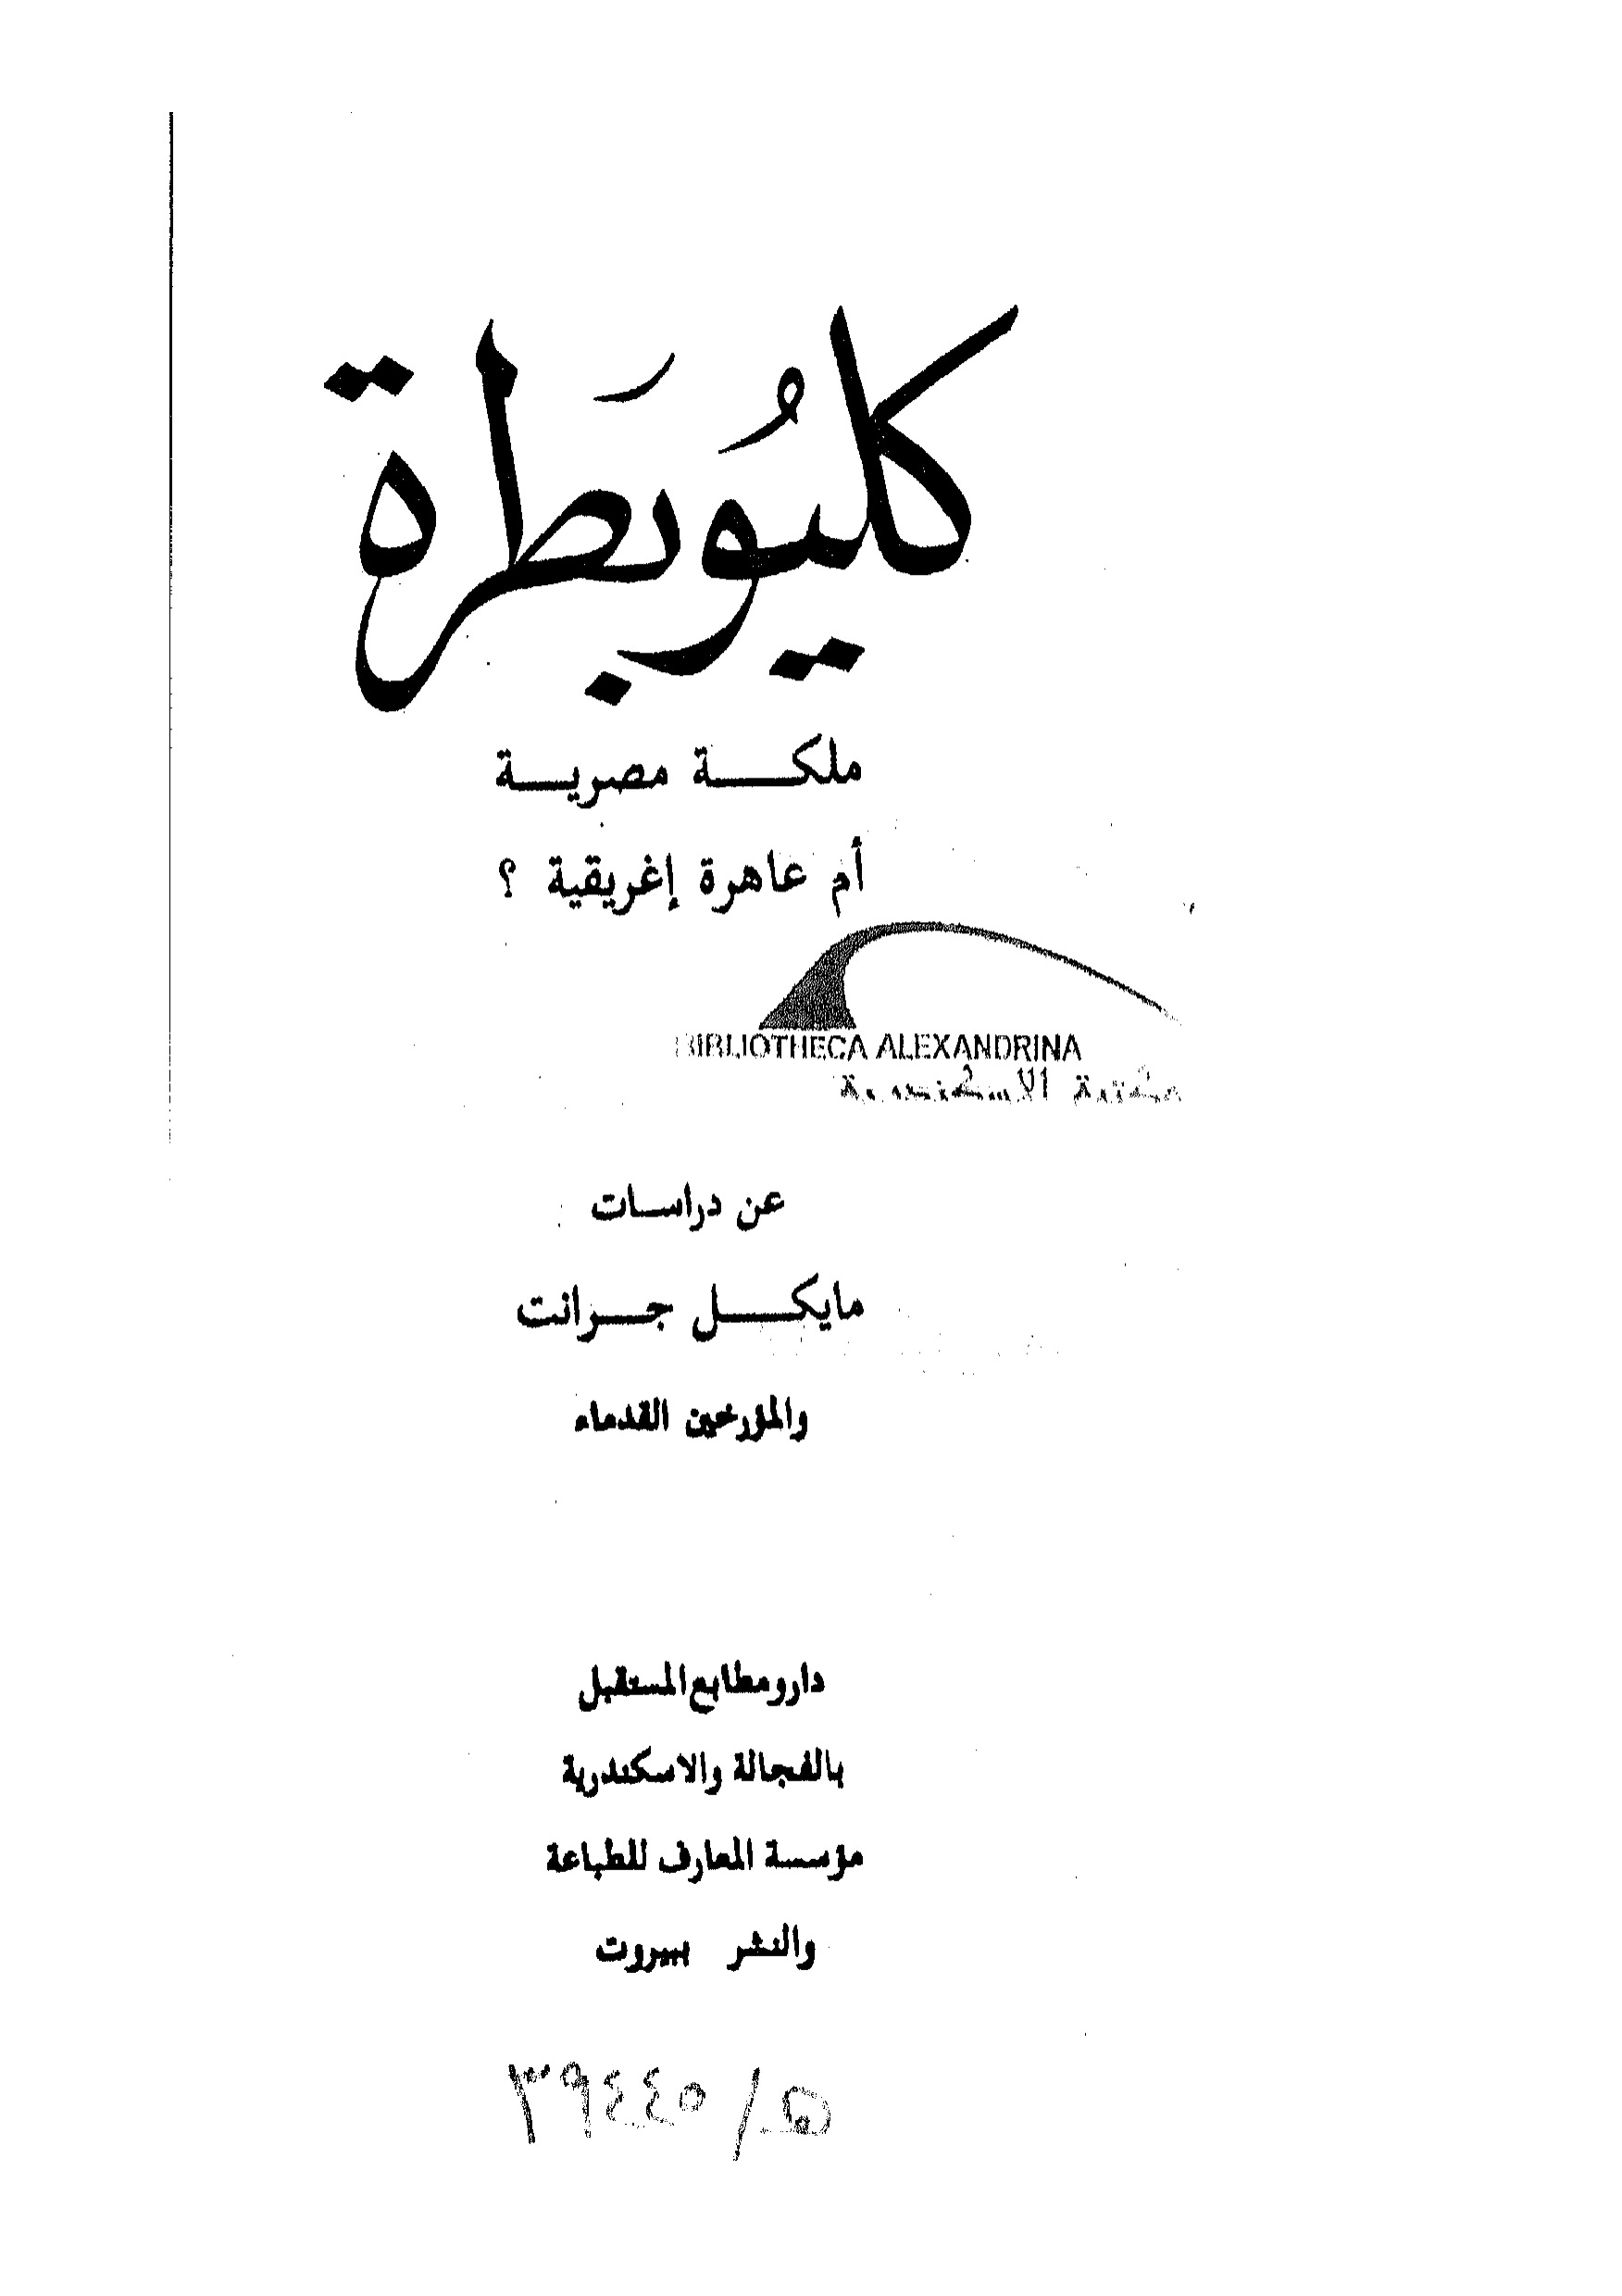 كليُوبَطرة
ملكة مصرية
أم عاهرة إغريقية ؟
BIBLIOTHECA ALEXANDRINA
مكتبة الاسكندرية
عن دراسات
مايكل جرانت
والمؤرخين القدماء
دار ومطابع المستقبل
بالفجالة والاسكندرية
مؤسسة المعارف للطباعة
والنشر ببيروت
٣٩٤٤٥ /